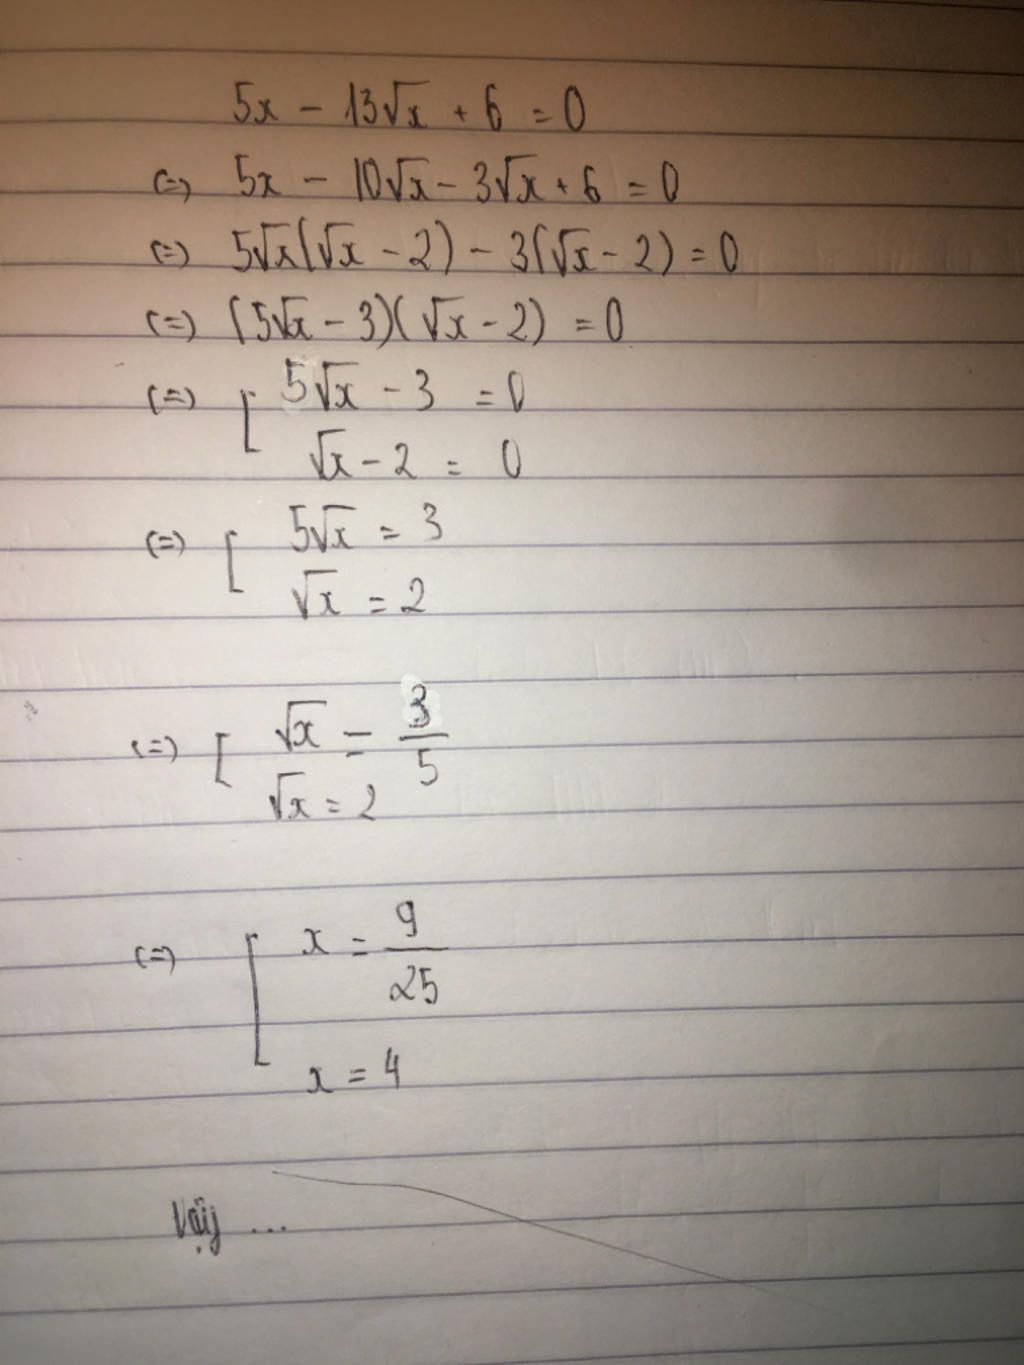 5x - 13√x + 6 = 0
(=) 5x - 10√x - 3√x + 6 = 0
(=) 5√x(√x - 2) - 3(√x - 2) = 0
(=) (5√x - 3)(√x - 2) = 0
(=) [ 5√x - 3 = 0
√x - 2 = 0
(=) [ 5√x = 3
√x = 2
(=) [ √x = 3/5
√x = 2
(=) [ x = 9/25
x = 4
Vậy ...